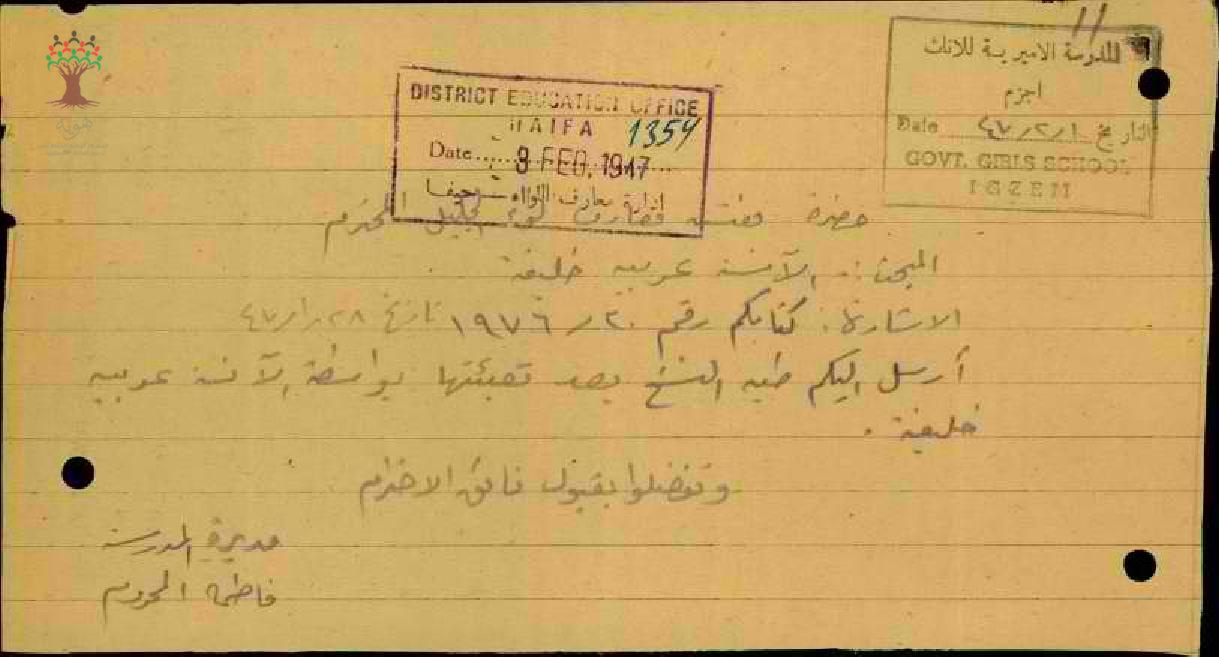 11
المدرسة الاميرية للاناث
اجزم
Date ٤٧/٢/١ التاريخ
GOVT. GIRLS SCHOOL
IGZEM
DISTRICT EDUCATION OFFICE
HAIFA 1354
Date 3 FEB. 1947
ادارة معارف اللواء حيفا
هوية
حضرة مفتش معارف لواء الجليل المحترم
المبحث :- الآنسة عربيه خليفة
الاشارة : كتابكم رقم ١٩٧٦/٢٠ تاريخ ٤٧/١/٢٨
أرسل اليكم طيه النسخ بعد تعبئتها بواسطة الآنسة عربيه
خليفة .
وتفضلوا بقبول فائق الاحترام
مديرة المدرسة
فاطمة